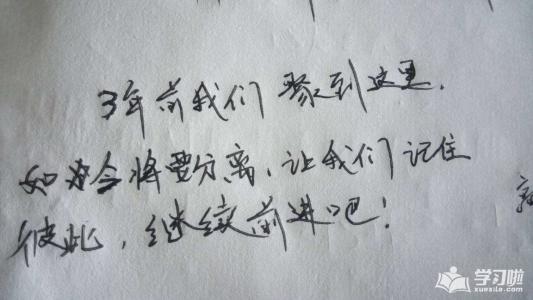 3年前我们聚到这里.
如今将要分离,让我们记住
彼此,继续前进吧!
学习啦
xuexila.com